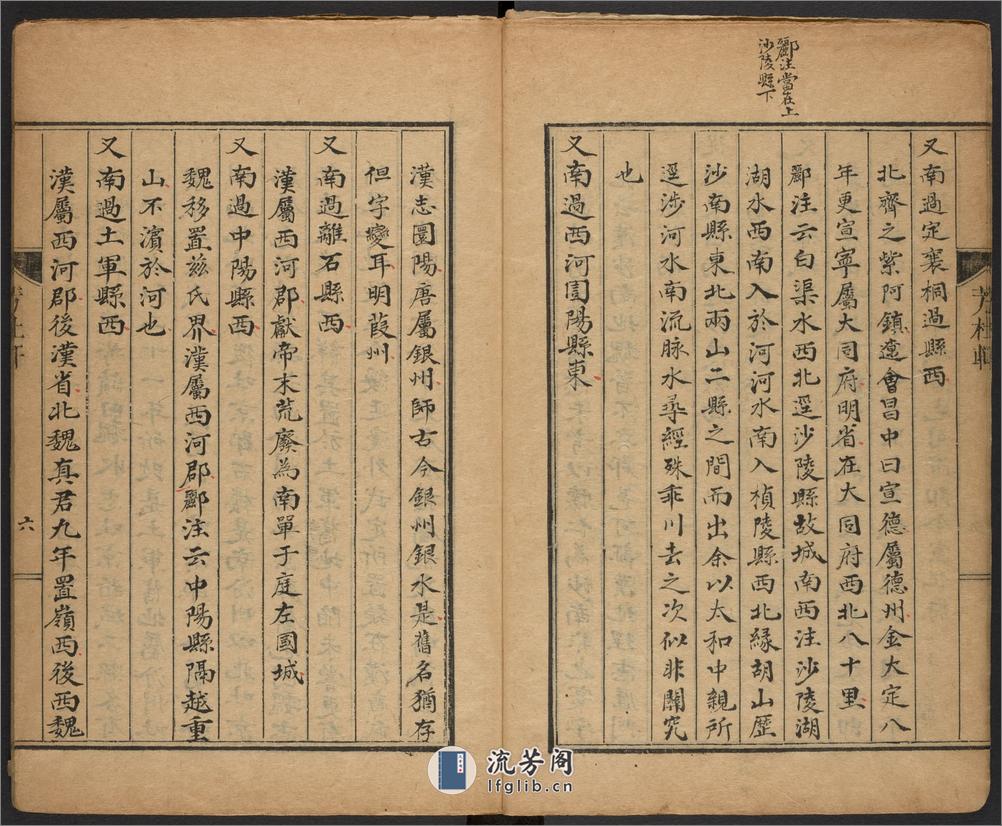 酈注當在上
沙陵縣下
又南過定襄桐過縣西
北齊之紫阿鎮遼會昌中曰宣德屬德州金大定八
年更宣寧屬大同府明省在大同府西北八十里
酈注云白渠水西北逕沙陵縣故城南西注沙陵湖
湖水西南入於河河水南入楨陵縣西北緣胡山歷
沙南縣東北兩山二縣之間而出余以太和中親所
逕涉河水南流脉水尋經殊乖川去之次似非關究
也
又南過西河圁陽縣東
漢志圁陽唐屬銀州師古今銀州銀水是舊名猶存
但字變耳明葭州
又南過離石縣西
漢屬西河郡獻帝末荒廢為南單于庭左國城
又南過中陽縣西
魏移置茲氏界漢屬西河郡酈注云中陽縣隔越重
山不濱於河也
又南過土軍縣西
漢屬西河郡後漢省北魏真君九年置嶺西後西魏
六
流芳阁
lfglib.cn